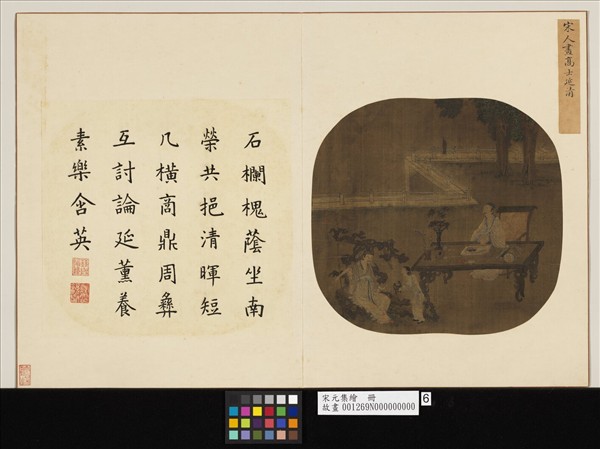 宋人畫高士挹清
石欄槐蔭坐南
榮共挹清暉短
几橫商鼎周彝
互討論延薰養
素樂含英
宋元集繪 冊
故畫 001269N000000000
6